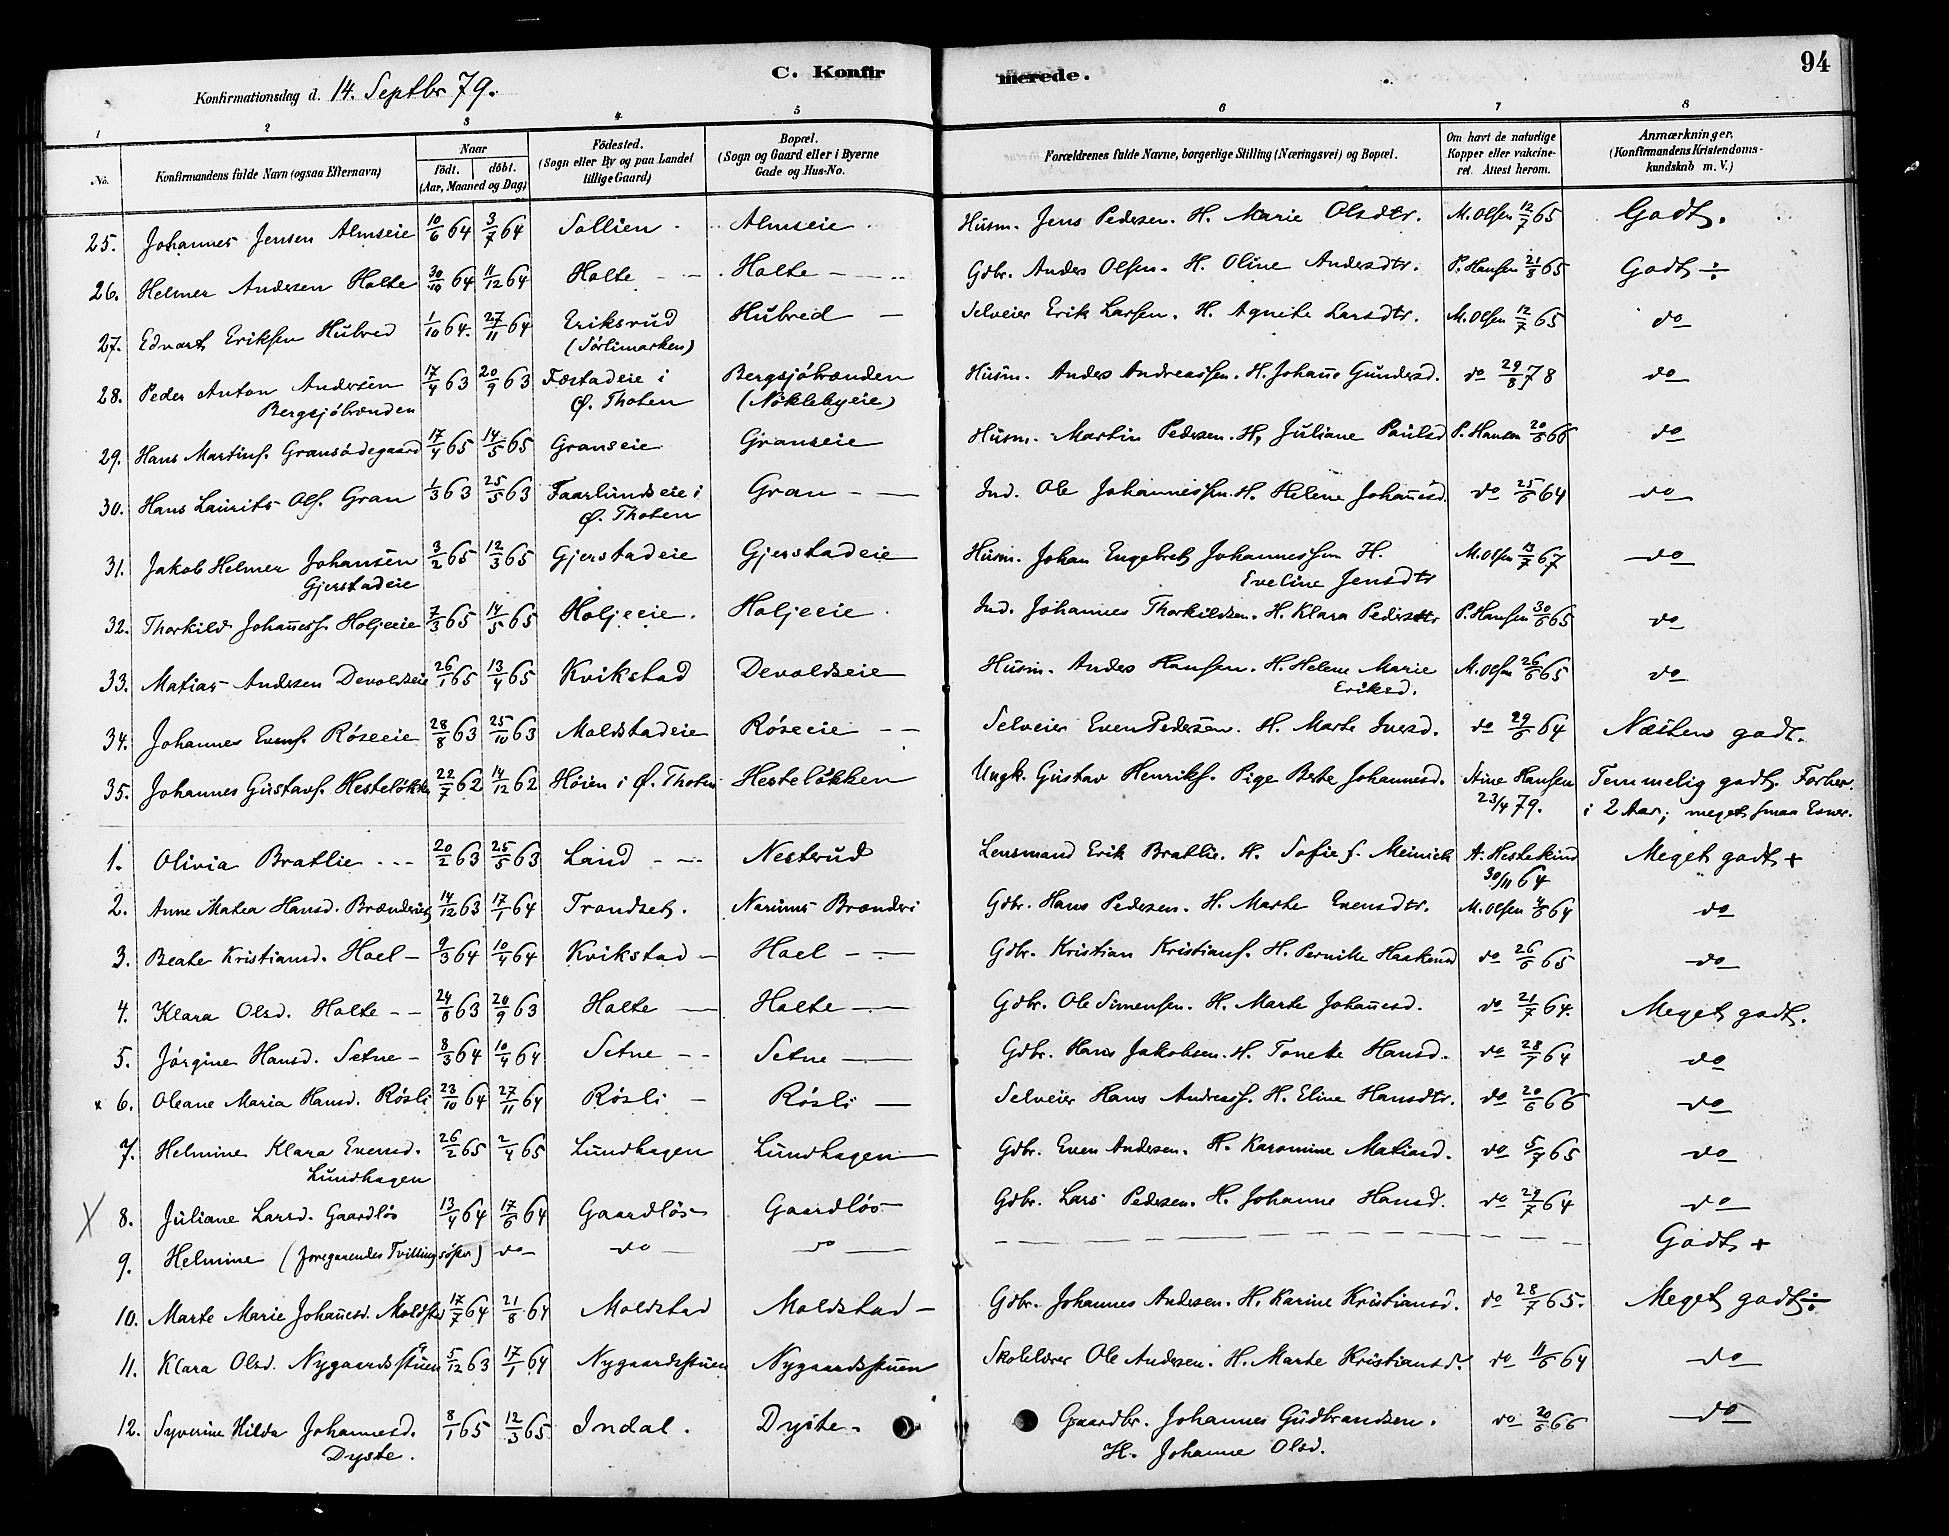 C. Konfirmerede.
94
Konfirmationsdag d. 14. Septbr 79.
1 2 3 4 5 6 7 8
No.
Konfirmandens fulde Navn (ogsaa Efternavn)
Naar
födt. döbt.
(Aar, Maaned og Dag)
Födested.
(Sogn eller By og paa Landet
tillige Gaard)
Bopæl.
(Sogn og Gaard eller i Byerne
Gade og Hus-No.
Forældrenes fulde Navne, borgerlige Stilling (Næringsvei) og Bopæl.
Om havt de naturlige
Kopper eller vakcine-
ret. Attest herom.
Anmærkninger.
(Konfirmandens Kristendoms-
kundskab m. V.)
25. Johannes Jensen Almseie 10/6 64 3/7 64 Sollien Almseie Husm. Jens Pedersen. H. Marie Olsdtr. M. Olsen 12/7 65 Godt.
26. Helmer Andersen Holte 30/10 64 11/12 64 Holte Holte Gdbr. Anders Olsen. H. Oline Andersdtr. P. Hansen 21/8 65 Godt ÷
27. Edvart Eriksen Hubred 1/10 64. 27/11 64 Eriksrud Hubred Selveier Erik Larsen. H. Agnethe Larsdtr. M. Olsen 12/7 65 do
(Sörlimarken)
28. Peder Anton Andersen 17/4 63 20/9 63 Fæstadeie i Bergsjöbrænden Husm. Anders Andreassen. H. Johanne Gundersd. do 29/8 78 do
Bergsjöbrænden Ø. Thoten (Nöklebyeie)
29. Hans Martins. Gransödegaard 17/4 65 14/5 65 Granseie Granseie Husm. Martin Pedersen. H. Juliane Paulsd P. Hansen 20/6 66 do
30. Hans Laurits Ols. Gran 1/3 63 25/5 63 Faarlundseie i Gran Ind. Ole Johannessen. H. Helene Johannesd. do 25/6 64 do
Ø. Thoten
31. Jakob Helmer Johansen 3/2 65 12/3 65 Gjerstadeie Gjerstadeie Husm. Johan Engebret Johannessen H. M. Olsen 13/7 67 do
Gjerstadeie Eveline Jensdtr
32. Thorkild Johanness. Holjeeie 7/3 65 14/5 65 Holjeeie. Holjeeie. Ind. Johannes Thorkildsen. H. Klara Pedersdtr P. Hansen 30/6 65 do
33. Matias Andersen Devoldseie 26/1 65 13/4 65 Kvikstad Devoldseie Husm. Anders Hansen. H. Helene Marie M. Olsen 26/6 65 do
Eriksd.
34. Johannes Evens. Röseeie 28/8 63 25/10 63 Moldstadeie Röseeie Selveier Even Pedersen. H. Marte Iversd. do 29/6 64 Næsten godt.
35. Johannes Gustavs. Hestelökken 22/7 62 14/12 62 Höien i Ø. Thoten Hestelökken Ungk. Gustav Henriks. Pige Berte Johannesd. Stine Hansen Temmelig godt. Forber.
23/4 79. i 2 Aar; meget smaa Evner.
1. Olivia Bratlie 20/2 63 25/5 63 Land Nesterud Lensmand Erik Bratlie. H. Sofie f. Meinich A. Hestekind Meget godt +
30/11 64
2. Anne Matea Hansd. Brænderiet 14/12 63 17/1 64 Trondset. Narums Brænderi Gdbr. Hans Pedersen. H. Marthe Evensdtr. M. Olsen 64 do
3. Beate Kristiansd. Hoel 9/3 64 10/4 64 Kvikstad Hoel Gdbr. Kristian Kristians. H. Pernille Haakensd do 26/6 65 do
4. Klara Olsd. Holte 24/8 63 20/9 63 Holte Holte Gdbr. Ole Simensen. H. Marte Johannesd. do 21/7 64. Meget godt.
5. Jörgine Hansd. Setne 8/3 64 10/4 64 Setne Setne Gdbr. Hans Jakobsen. H. Tonette Hansd. do 28/7 64 do
x 6. Oleane Maria Hansd. Rösli 23/10 64 27/11 64 Rösli Rösli Selveier Hans Andreass. H. Eline Hansdtr. do 20/6 66 do
7. Helmine Klara Evensd. 26/2 65 2/4 65 Lundhagen Lundhagen Gdbr. Even Andersen. H. Karomine Matiasd. do 5/7 65 do
Lundhagen
X 8. Juliane Larsd. Gaardlös 13/4 64 17/6 64 Gaardlös Gaardlös Gdbr. Lars Pedersen. H. Johanne Hansd. do 29/7 64 do
9. Helmine (foregaaendes Tvillingsöster) do do do Godt +
10. Marte Marie Johannesd. Moldstad 17/7 64 21/8 64 Moldstad Moldstad Gdbr. Johannes Andersen. H. Karine Kristiansd. do 28/7 65. Meget godt ÷
11. Klara Olsd. Nygaardsstuen 5/12 63 17/1 64 Nygaardsstuen Nygaardsstuen Skolelærer Ole Andersen. H. Marte Kristiansd. do 11/6 64 do
12. Syverine Hilda Johannesd. 8/1 65 12/3 65 Indal. Dyste. Gaardbr. Johannes Gudbrandsen. do 20/6 66 do
Dyste. H. Johanne Olsd.